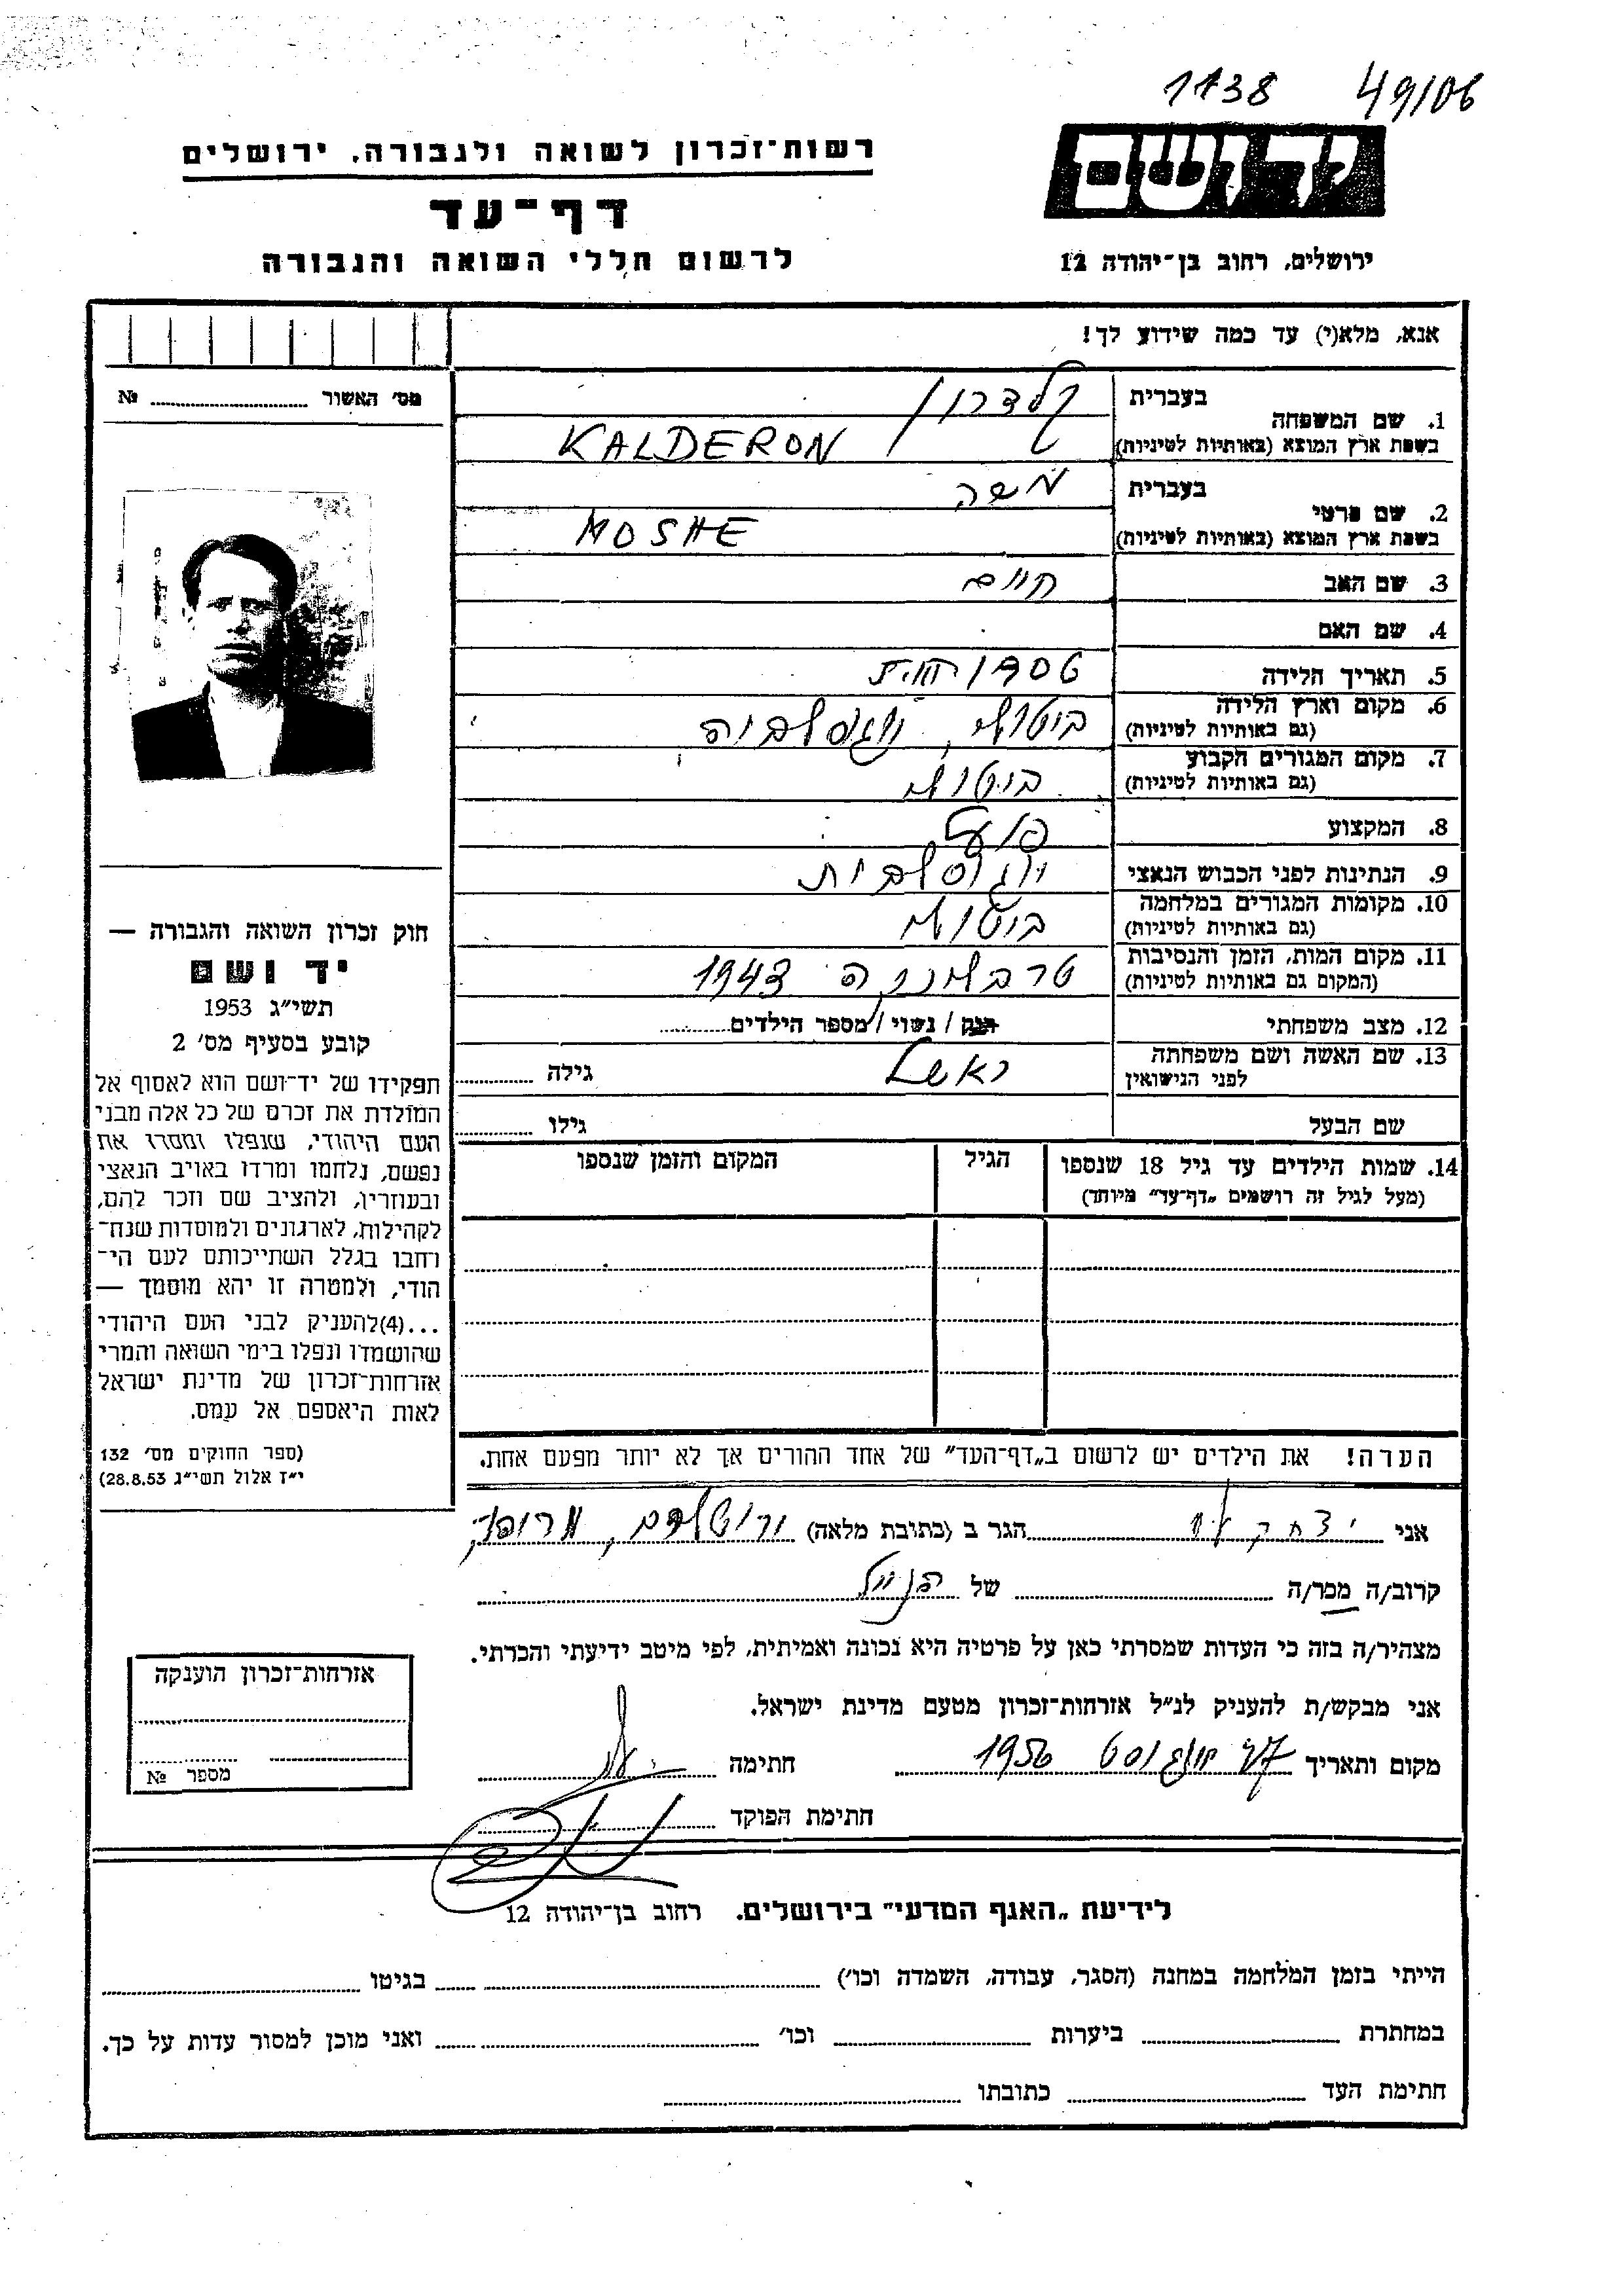 1138 49/06
יד ושם
רשות־זכרון לשואה ולגבורה, ירושלים
דף־עד
ירושלים, רחוב בן־יהודה 12
לרשום חללי השואה והגבורה
אנא, מלא(י) עד כמה שידוע לך!
מס׳ האשור № 
1. שם המשפחה
בעברית קלדרון
בשפת ארץ המוצא (באותיות לטיניות) KALDERON
2. שם פרטי
בעברית משה
בשפת ארץ המוצא (באותיות לטיניות) MOSHE
3. שם האב חיים
4. שם האם
5. תאריך הלידה
6. מקום וארץ הלידה ביטולי, יוגוסלביה
(גם באותיות לטיניות)
7. מקום המגורים הקבוע ביטולי
(גם באותיות לטיניות)
8. המקצוע פועל
9. הנתינות לפני הכבוש הנאצי יוגוסלבית
10. מקומות המגורים במלחמה ביטולי
(גם באותיות לטיניות)
11. מקום המות, הזמן והנסיבות טרבלינקה 1943
(המקום גם באותיות לטיניות)
12. מצב משפחתי רוק / נשוי / מספר הילדים
13. שם האשה ושם משפחתה
לפני הנישואין ראשל גילה
שם הבעל גילו
14. שמות הילדים עד גיל 18 שנספו הגיל המקום והזמן שנספו
(מעל לגיל זה רושמים „דף־עד״ מיוחד)
הערה! את הילדים יש לרשום ב„דף־העד״ של אחד ההורים אך לא יותר מפעם אחת.
חוק זכרון השואה והגבורה —
יד ושם
תשי״ג 1953
קובע בסעיף מס׳ 2
תפקידו של יד־ושם הוא לאסוף אל
המולדת את זכרם של כל אלה מבני
העם היהודי, שנפלו ומסרו את
נפשם, נלחמו ומרדו באויב הנאצי
ובעוזריו, ולהציב שם וזכר להם,
לקהילות, לארגונים ולמוסדות שנח־
רחבו בגלל השתייכותם לעם הי־
הודי, ולמטרה זו יהא מוסמך —
...(4)להעניק לבני העם היהודי
שהושמדו ונפלו בימי השואה והמרי
אזרחות־זכרון של מדינת ישראל
לאות היאספם אל עמם.
(ספר החוקים מס׳ 132
י״ז אלול תשי״ג 28.8.53)
אני יצחק לוי הגר ב (כתובת מלאה) ירושלים,
קרוב/ה מכר/ה של הנ״ל
מצהיר/ה בזה כי העדות שמסרתי כאן על פרטיה היא נכונה ואמיתית, לפי מיטב ידיעתי והכרתי.
אני מבקש/ת להעניק לנ״ל אזרחות־זכרון מטעם מדינת ישראל.
מקום ותאריך אוגוסט 1956 חתימה
חתימת הפוקד
אזרחות־זכרון הוענקה
מספר №
לידיעת „האגף המדעי״ בירושלים. רחוב בן־יהודה 12
הייתי בזמן המלחמה במחנה (הסגר, עבודה, השמדה וכו׳) בגיטו
במחתרת ביערות וכו׳ ואני מוכן למסור עדות על כך.
חתימת העד כתובתו